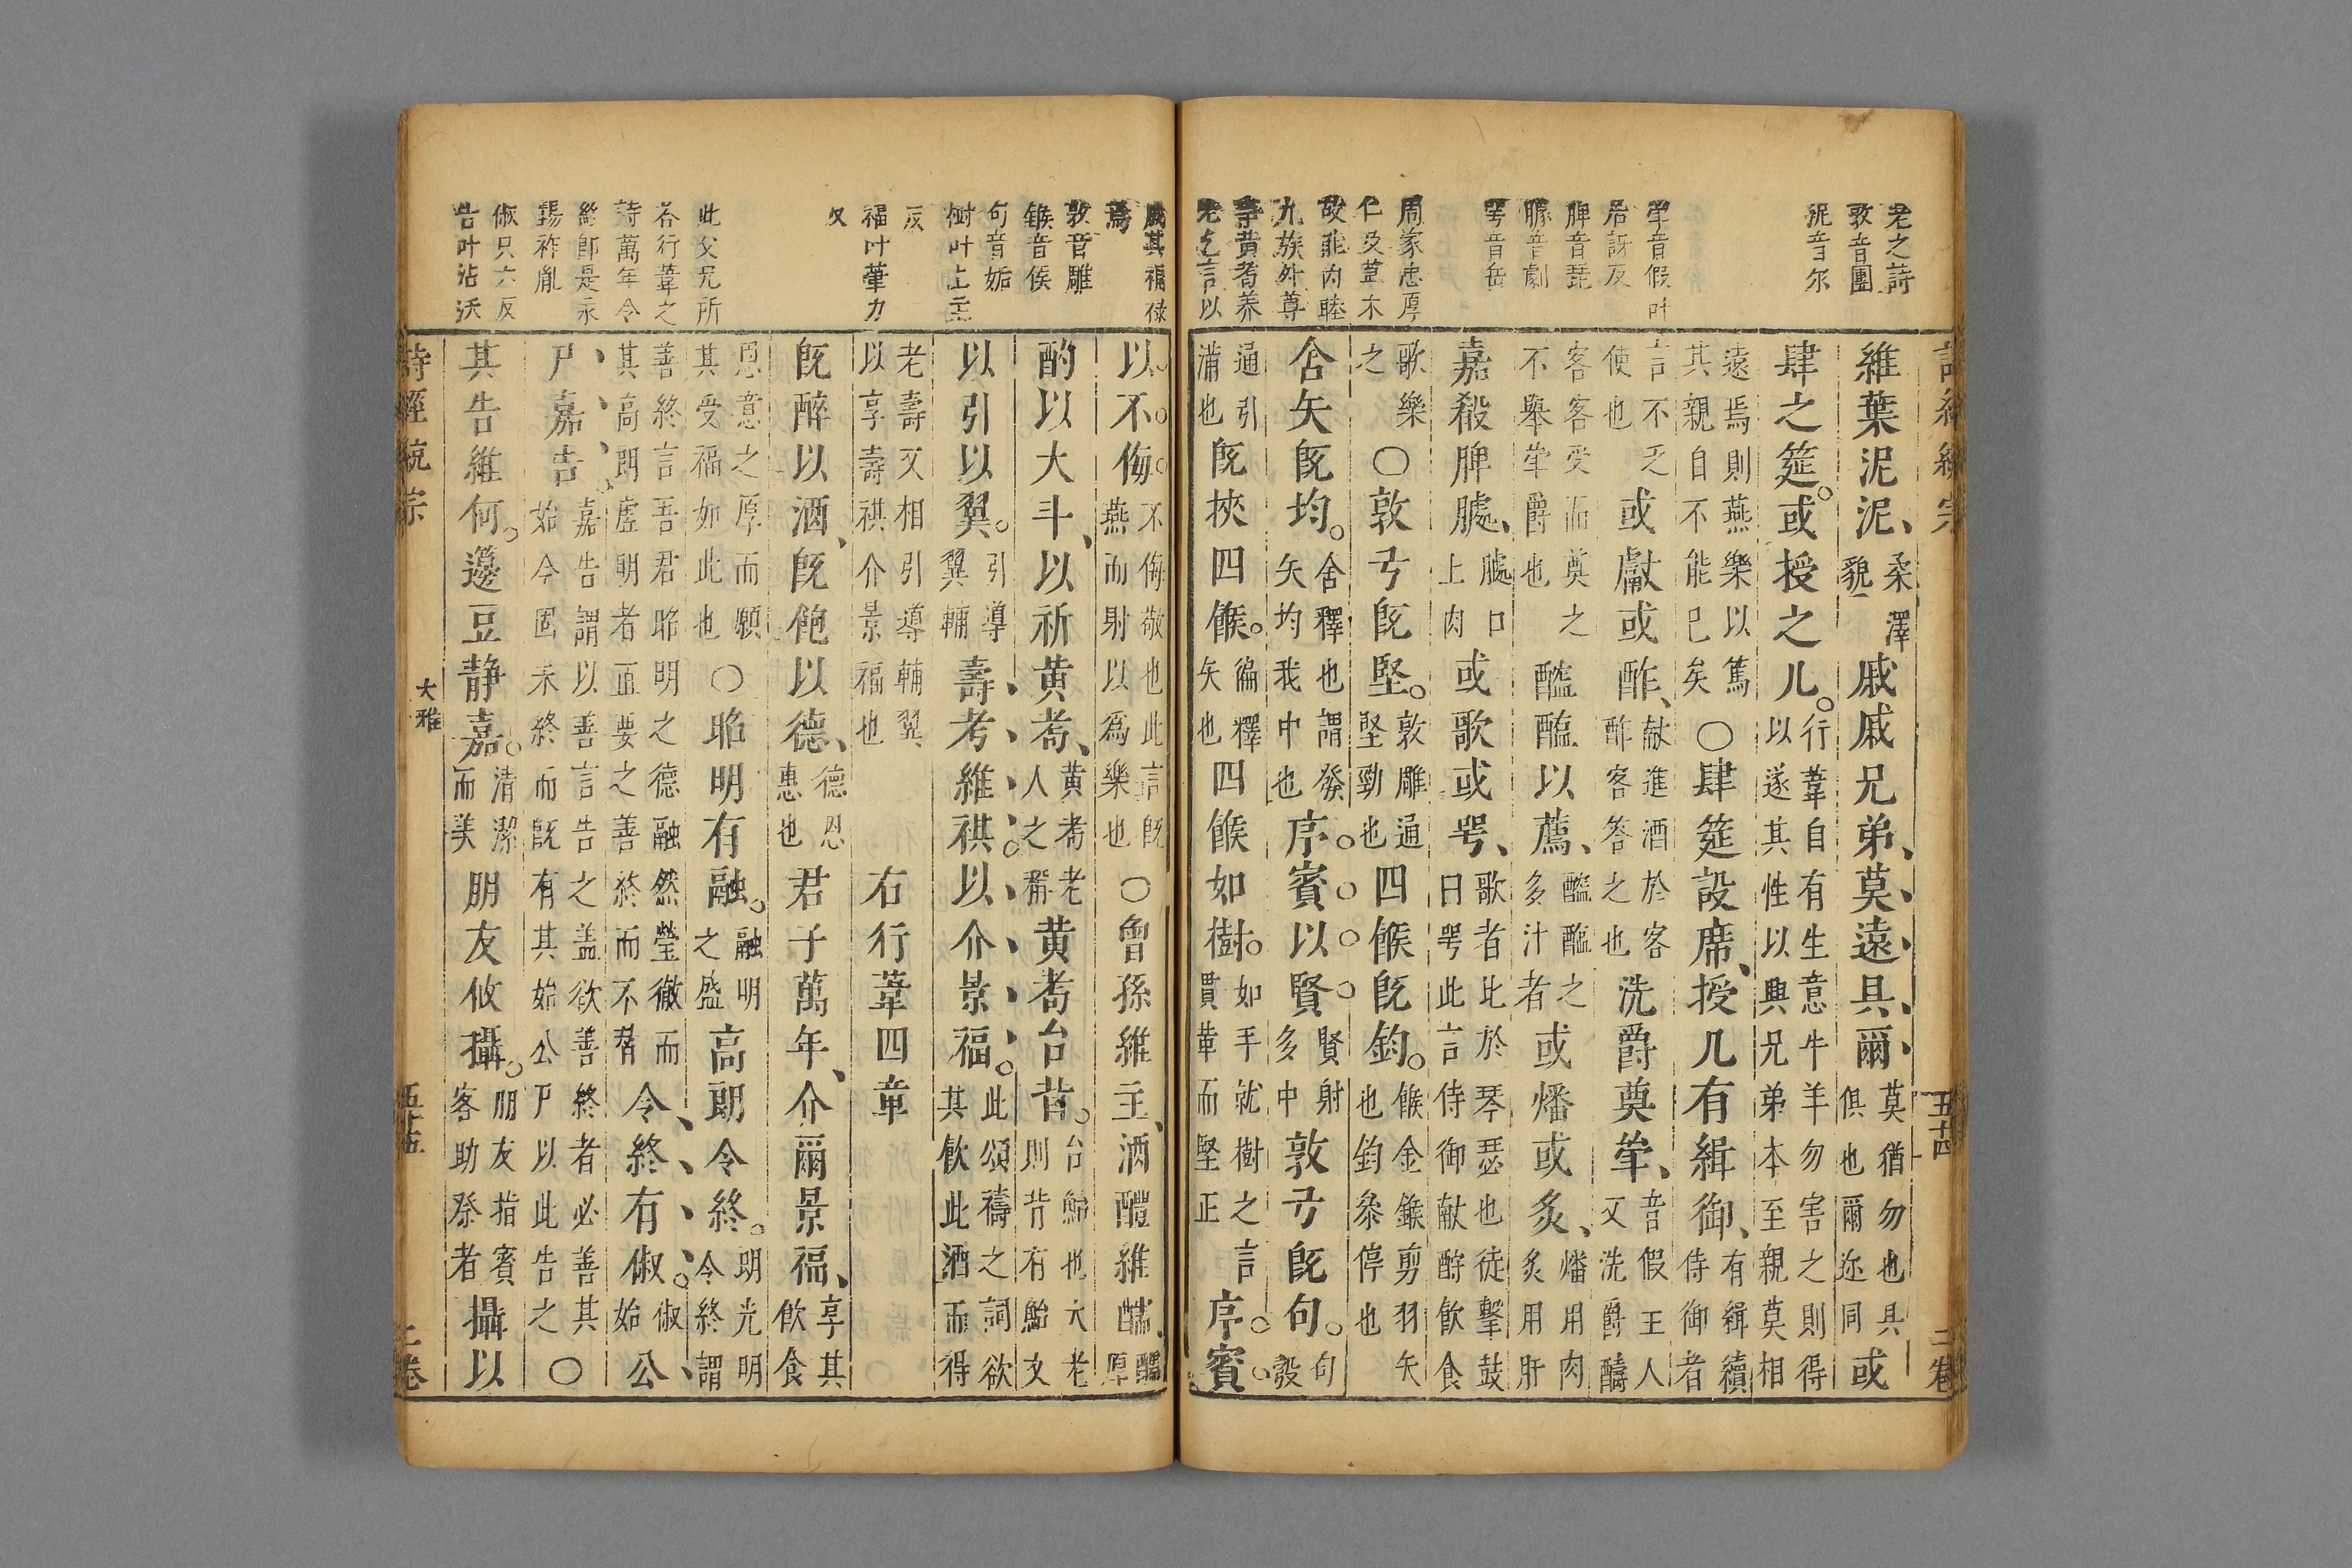 老之詩
敦音團
泥音尔
斝音假叶
居訝反
脾音琵
臄音劇
咢音岳
周家忠厚
仁及草木
故能内睦
九族外尊
事黄耇养
老乞言以
詩經統宗
五十四
二卷
維葉泥泥、柔澤貌戚戚兄弟、莫遠具爾莫猶勿也具俱也爾迩同或
肆之筵。或授之几。行葦自有生意牛羊勿害之則得以遂其性以興兄弟本至親莫相
遠焉則燕樂以篤其親自不能已矣○肆筵設席、授几有緝御、有緝續侍御者
言不乏使也或獻或酢、献進酒於客酢客答之也洗爵奠斝、音假王人又洗爵醻
客客受而奠之不舉斝爵也醓醢以薦、醓醢之多汁者或燔或炙、燔用肉炙用肝
嘉殽脾臄、臄口上肉或歌或咢、歌者比於琴瑟也徒擊鼓曰咢此言侍御献酧飲食
歌樂之○敦弓旣堅。敦雕通堅勁也四鍭旣鈞。鍭金鏃剪羽矢也鈞叅停也
舍矢旣均。舍釋也謂發矢均我中也序賓以賢賢射多中敦弓旣句。句彀
通引滿也旣挾四鍭。徧釋矢也四鍭如樹。如手就樹之貫革而堅正言序賓
成其福祿
焉
敦音雕
鍭音侯
句音姤
樹叶上主
反
福叶筆力
反
此父兄所
答行葦之
詩萬年令
終即是永
錫祚胤
俶尺六反
告叶沽沃
以不侮不侮敬也此言旣燕而射以爲樂也○曾孫維主、酒醴維醹、醹厚
酌以大斗、以祈黄耇、黄耇老人之稱黄耇台背。台鮐也大老則背有鮐文
以引以翼。引導翼輔壽考維祺。以介景福。此頌禱之詞欲其飲此酒而得
老壽又相引導輔翼以享壽祺介景福也右行葦四章
旣醉以酒、旣飽以德、德恩惠也君子萬年、介爾景福、享其飲食
恩意之厚而願其受福如此也○昭明有融。融明之盛高朗令終。明光明令終謂
善終言吾君昭明之德融然瑩徹而其高朗虚明者直要之善終而不朁令終有俶。俶始公
尸嘉告嘉告謂以善言告之盖欲善終者必善其始今固未終而旣有其始公尸以此告之○
其告維何。籩豆静嘉。清潔而美朋友攸攝。朋友指賓客助祭者攝以
詩經統宗
大雅
五十五
二卷